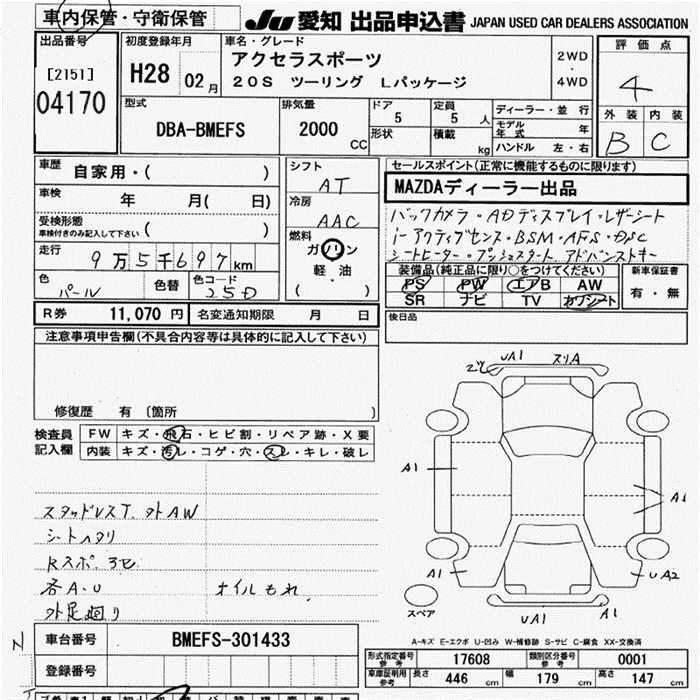 車内保管・守衛保管
JU 愛知 出品申込書 JAPAN USED CAR DEALERS ASSOCIATION
出品番号
[2151]
04170
初度登録年月
H28 02月
車名・グレード
アクセラスポーツ
20S ツーリング Lパッケージ
2WD
・
4WD
評価点
4
外装 内装
B C
型式
DBA-BMEFS
排気量
2000 CC
ドア 5
形状
定員 5 人
積載 kg
ディーラー・並行
モデル年式 年
ハンドル 左・右
車歴 自家用・( )
車検 年 月( 日)
受検形態
車検付きのみ記入して下さい ( )
走行 9万5千697km
色 パール 色替 色コード 25D
シフト
AT
冷房
AAC
燃料
ガソリン
軽・油
( )
セールスポイント(正常に機能するものに限ります)
MAZDAディーラー出品
バックカメラ・ADディスプレイ・レザーシート
i-アクティブセンス・BSM・AFS・DSC
シートヒーター・プッシュスタート アドバンストキー
装備品(純正品に限り○をつけてください)
PS PW エアB AW
SR ナビ TV カワシート
新車保証書
有・無
R券 11,070 円 名変通知期限 月 日
後日品
注意事項申告欄(不具合内容等は具体的に記入して下さい)
修復歴 有 〔箇所 〕
検査員記入欄
FW キズ・飛石・ヒビ割・リペア跡・X要
内装 キズ・汚レ・コゲ・穴・スレ・キレ・破レ
スタッドレスT. 外AW
シートヘタリ
Rスポ. 3セ
各A.U オイルもれ.
外足廻り
UA1 スリA
A1
A1
A1
UA2
UA1
A1
スペア
A-キズ E-エクボ U-凹み W-補修跡 S-サビ C-腐食 XX-交換済
車台番号 BMEFS-301433
登録番号
形式指定番号 参考 17608 類別区分番号 参考 0001
車庫証明 参考 長さ 446 cm 幅 179 cm 高さ 147 cm